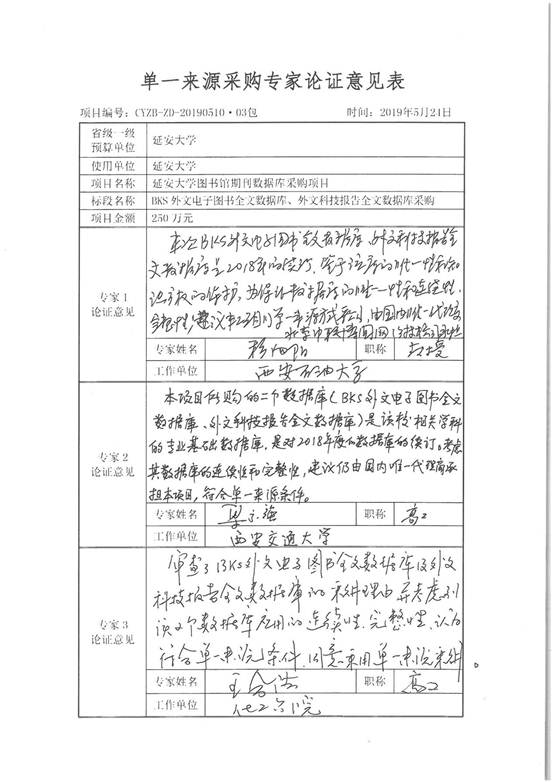 单一来源采购专家论证意见表
项目编号：CYZB-ZD-20190510·03包 时间：2019年5月24日
省级一级预算单位 延安大学
使用单位 延安大学
项目名称 延安大学图书馆期刊数据库采购项目
标段名称 BKS 外文电子图书全文数据库、外文科技报告全文数据库采购
项目金额 250 万元
专家 1 论证意见
本次BKS外文电子图书全文数据库、外文科技报告全
文数据库是2018年的续订，鉴于该库的唯一性和知
识产权的保护，为保证数据库的唯一性和连续性、
合理性，建议本项目用单一来源方式采购，由国内唯一代理商
专家姓名 职称 教授
工作单位 西安石油大学
专家 2 论证意见
本项目所购的二个数据库（BKS外文电子图书全文
数据库、外文科技报告全文数据库）是该校相关学科
的专业基础数据库，是对2018年度的数据库的续订。考虑
其数据库的连续性和完整性，建议仍由国内唯一代理商承
担本项目，符合单一来源条件。
专家姓名 职称 高工
工作单位 西安交通大学
专家 3 论证意见
审查了BKS外文电子图书全文数据库及外文
科技报告全文数据库的采购理由，并考虑到
该2个数据库应用的连续性、完整性，认为
符合单一来源条件，同意采用单一来源采购。
专家姓名 职称 高工
工作单位